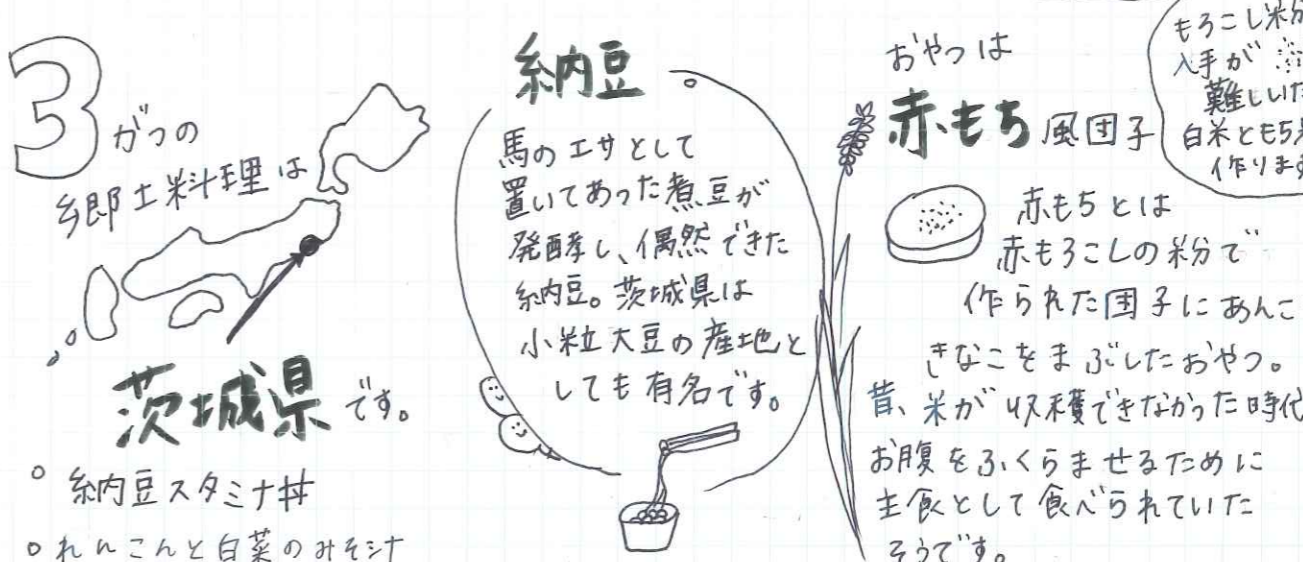 3がつの
郷土料理は
茨城県です。
○ 納豆スタミナ丼
○ れんこんと白菜のみそ汁
納豆
馬のエサとして
置いてあった煮豆が
発酵し、偶然できた
納豆。茨城県は
小粒大豆の産地と
しても有名です。
おやつは
赤もち風団子
もろこし米分
入手が
難しいた
白米ともち米
作ります
赤もちとは
赤もろこしの粉で
作られた団子にあんこ
きなこをまぶしたおやつ。
昔、米が収穫できなかった時代
お腹をふくらませるために
主食として食べられていた
そうです。